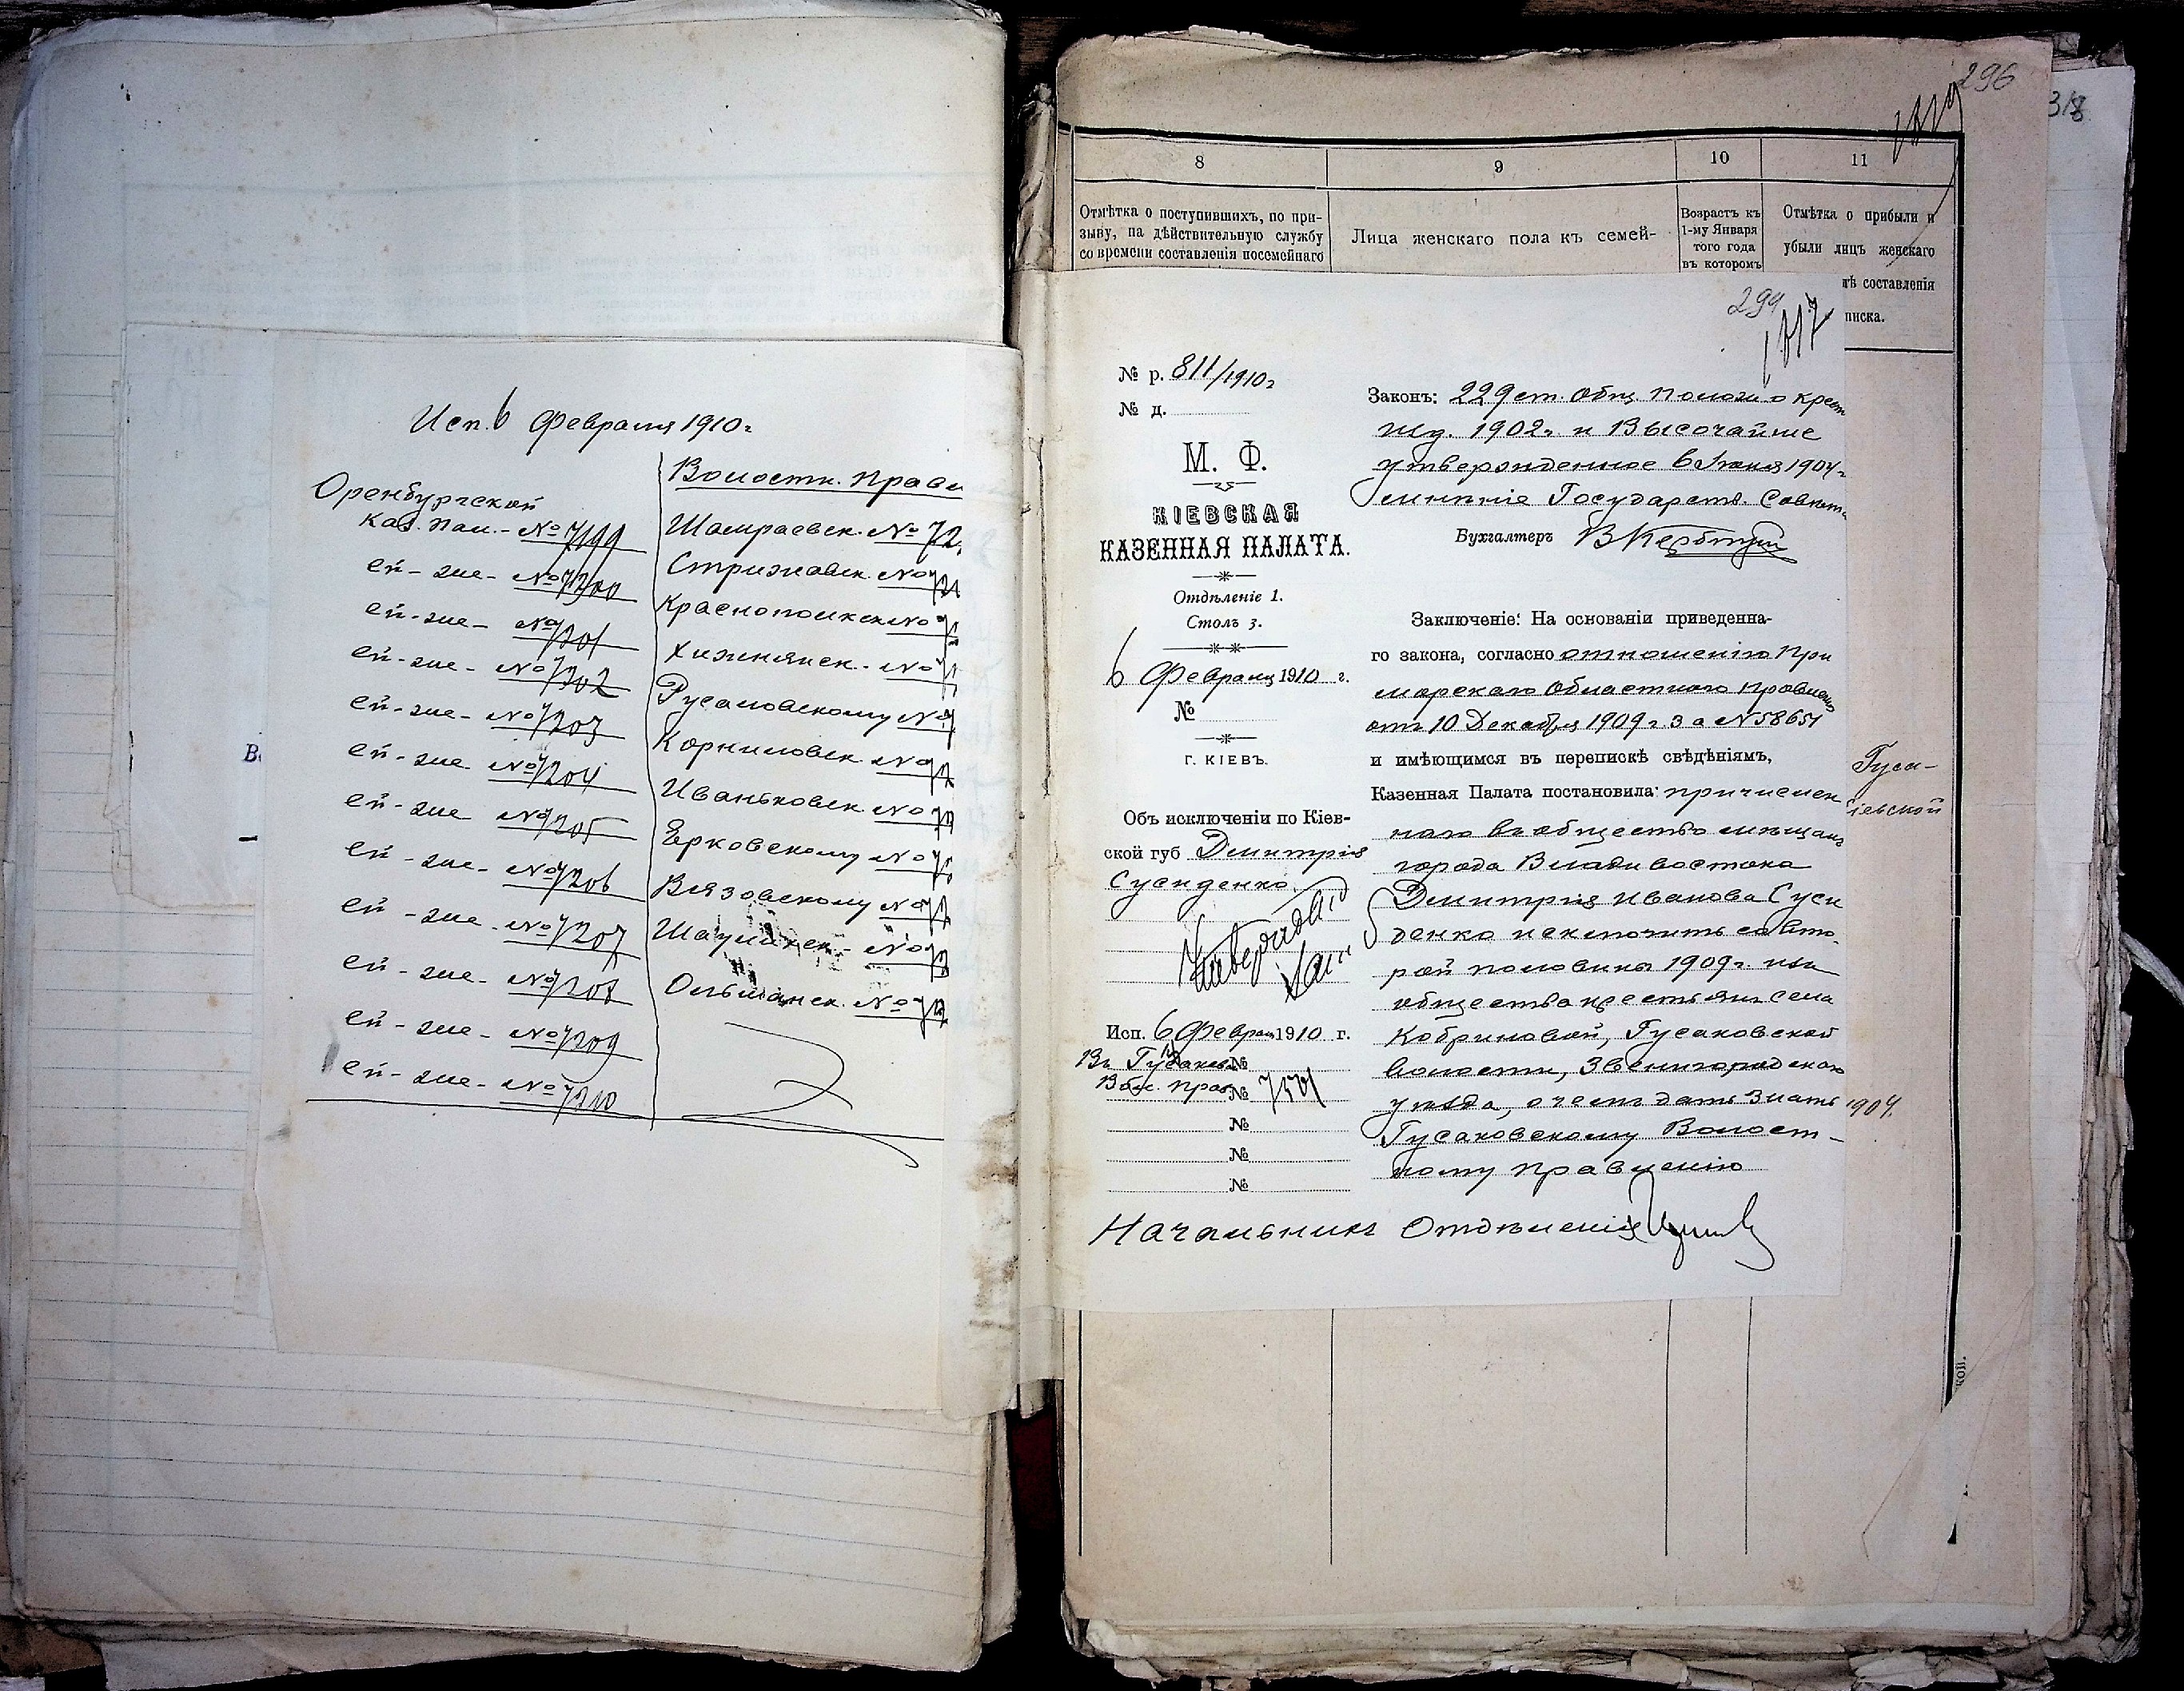 Исп. 6 Февраля 1910 г.
Оренбургской
Каз. Пал. - № 7199
ей - же - № 7200
ей - же - № 7201
ей - же - № 7202
ей - же - № 7203
ей - же № 7204
ей - же № 7205
ей - же - № 7206
ей - же - № 7207
ей - же - № 7208
ей - же - № 7209
ей - же - № 7210
Волостн. Правл
Шамраевск. № 72
Стрижавск. № 72
Краснопольск № 7
Хижинянск. - № 7
Русановскому №
Корниловск № 72
Иваньковск № 72
Ерковскому № 7
Вязовскому № 72
№ 72
Ольшанск. № 72
296
318
8
9
10
11
Отмѣтка о поступившихъ, по при-
зыву, на дѣйствительную службу
со времени составленія посемейнаго
Лица женскаго пола къ семей-
Возрастъ къ
1-му Января
того года
въ котором
Отмѣтка о прибыли и
убыли лицъ женскаго
тѣ составленія
писка.
299
№ р. 811/1910 г
№ д.
М. Ф.
КІЕВСКАЯ
КАЗЕННАЯ ПАЛАТА.
Отдѣленіе 1.
Столъ 3.
6 Февраля 1910 г.
№
Г. КІЕВЪ.
Объ исключеніи по Кіев-
ской губ Дмитрія
Сусиденко.
Утверждаю
Исп. 6 Февраля 1910 г.
Въ Гусаков. №
Вол. Прав. № 7501
№
№
№
Законъ: 229 ст. Общ. Полож. о крест
Изд. 1902 г. и Высочайше
утвержденное 6 Іюня 1904 г
мнѣніе Государств. Совѣта
Бухгалтеръ
Заключеніе: На основаніи приведенна-
го закона, согласно отношенію При
морскаго Областного Правленія
отъ 10 Декабря 1909 г. за № 58651
и имѣющимся въ перепискѣ свѣдѣніямъ,
Казенная Палата постановила: причислен
наго въ общество мѣщанъ
города Владивостока
Дмитрія Иванова Суси
денко исключить со вто-
рой половины 1909 г. изъ
общества крестьянъ села
Кобриновой, Гусаковской
волости, Звенигородскаго
уѣзда, о чемъ дать знать
Гусаковскому Волост-
ному Правленію
Начальникъ Отдѣленія
Гуса-
іевской
1904.
кой.